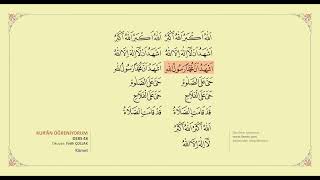 اَللّٰهُ اَكْبَرُ اَللّٰهُ اَكْبَرُ اَللّٰهُ اَكْبَرُ اَللّٰهُ اَكْبَرُ
اَشْهَدُ اَنْ لَٓا اِلٰهَ اِلَّا اللّٰهُ اَشْهَدُ اَنْ لَٓا اِلٰهَ اِلَّا اللّٰهُ
اَشْهَدُ اَنَّ مُحَمَّدًا رَسُولُ اللّٰهِ اَشْهَدُ اَنَّ مُحَمَّدًا رَسُولُ اللّٰهِ
حَىَّ عَلَى الصَّلٰوةِ حَىَّ عَلَى الصَّلٰوةِ
حَىَّ عَلَى الْفَلَاحِ حَىَّ عَلَى الْفَلَاحِ
قَدْ قَامَتِ الصَّلَاةُ قَدْ قَامَتِ الصَّلَاةُ
اَللّٰهُ اَكْبَرُ اَللّٰهُ اَكْبَرُ
لَٓا اِلٰهَ اِلَّا اللّٰهُ
KUR'ÂN ÖĞRENİYORUM
DERS 48
Okuyan: Fatih ÇOLLAK
Kâmet